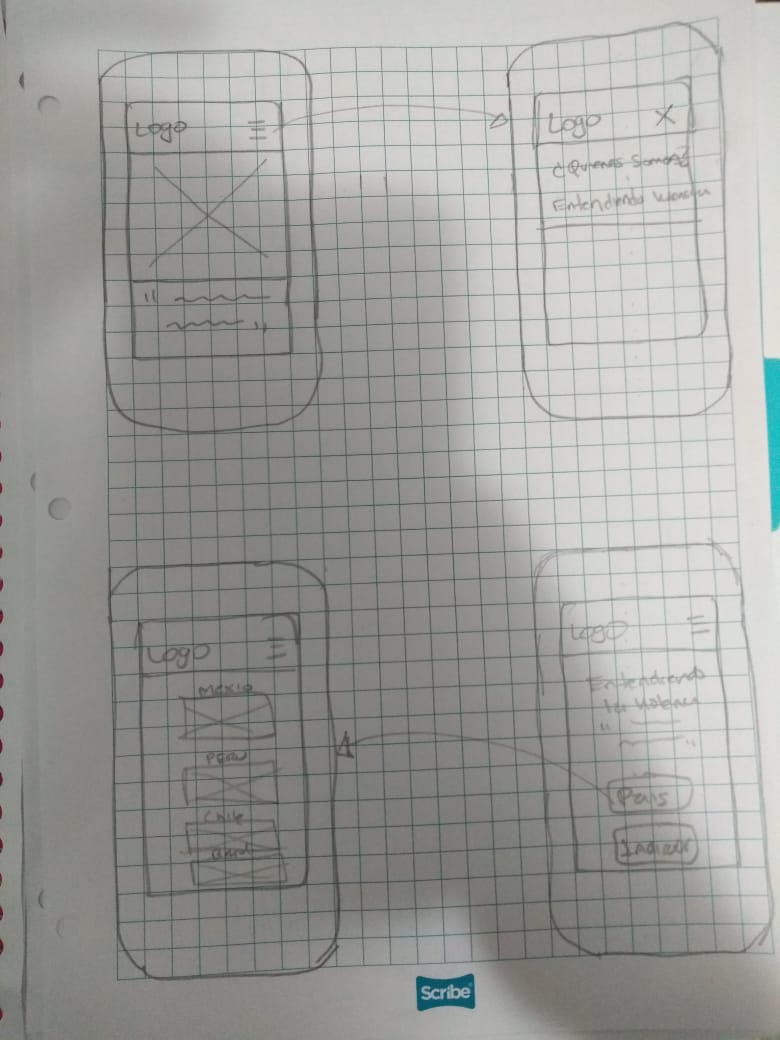 Logo
Logo
X
¿Quienes Somos?
Entendiendo
Logo
Mexico
Peru
Chile
Logo
Entendiendo
la Violencia
País
Scribe